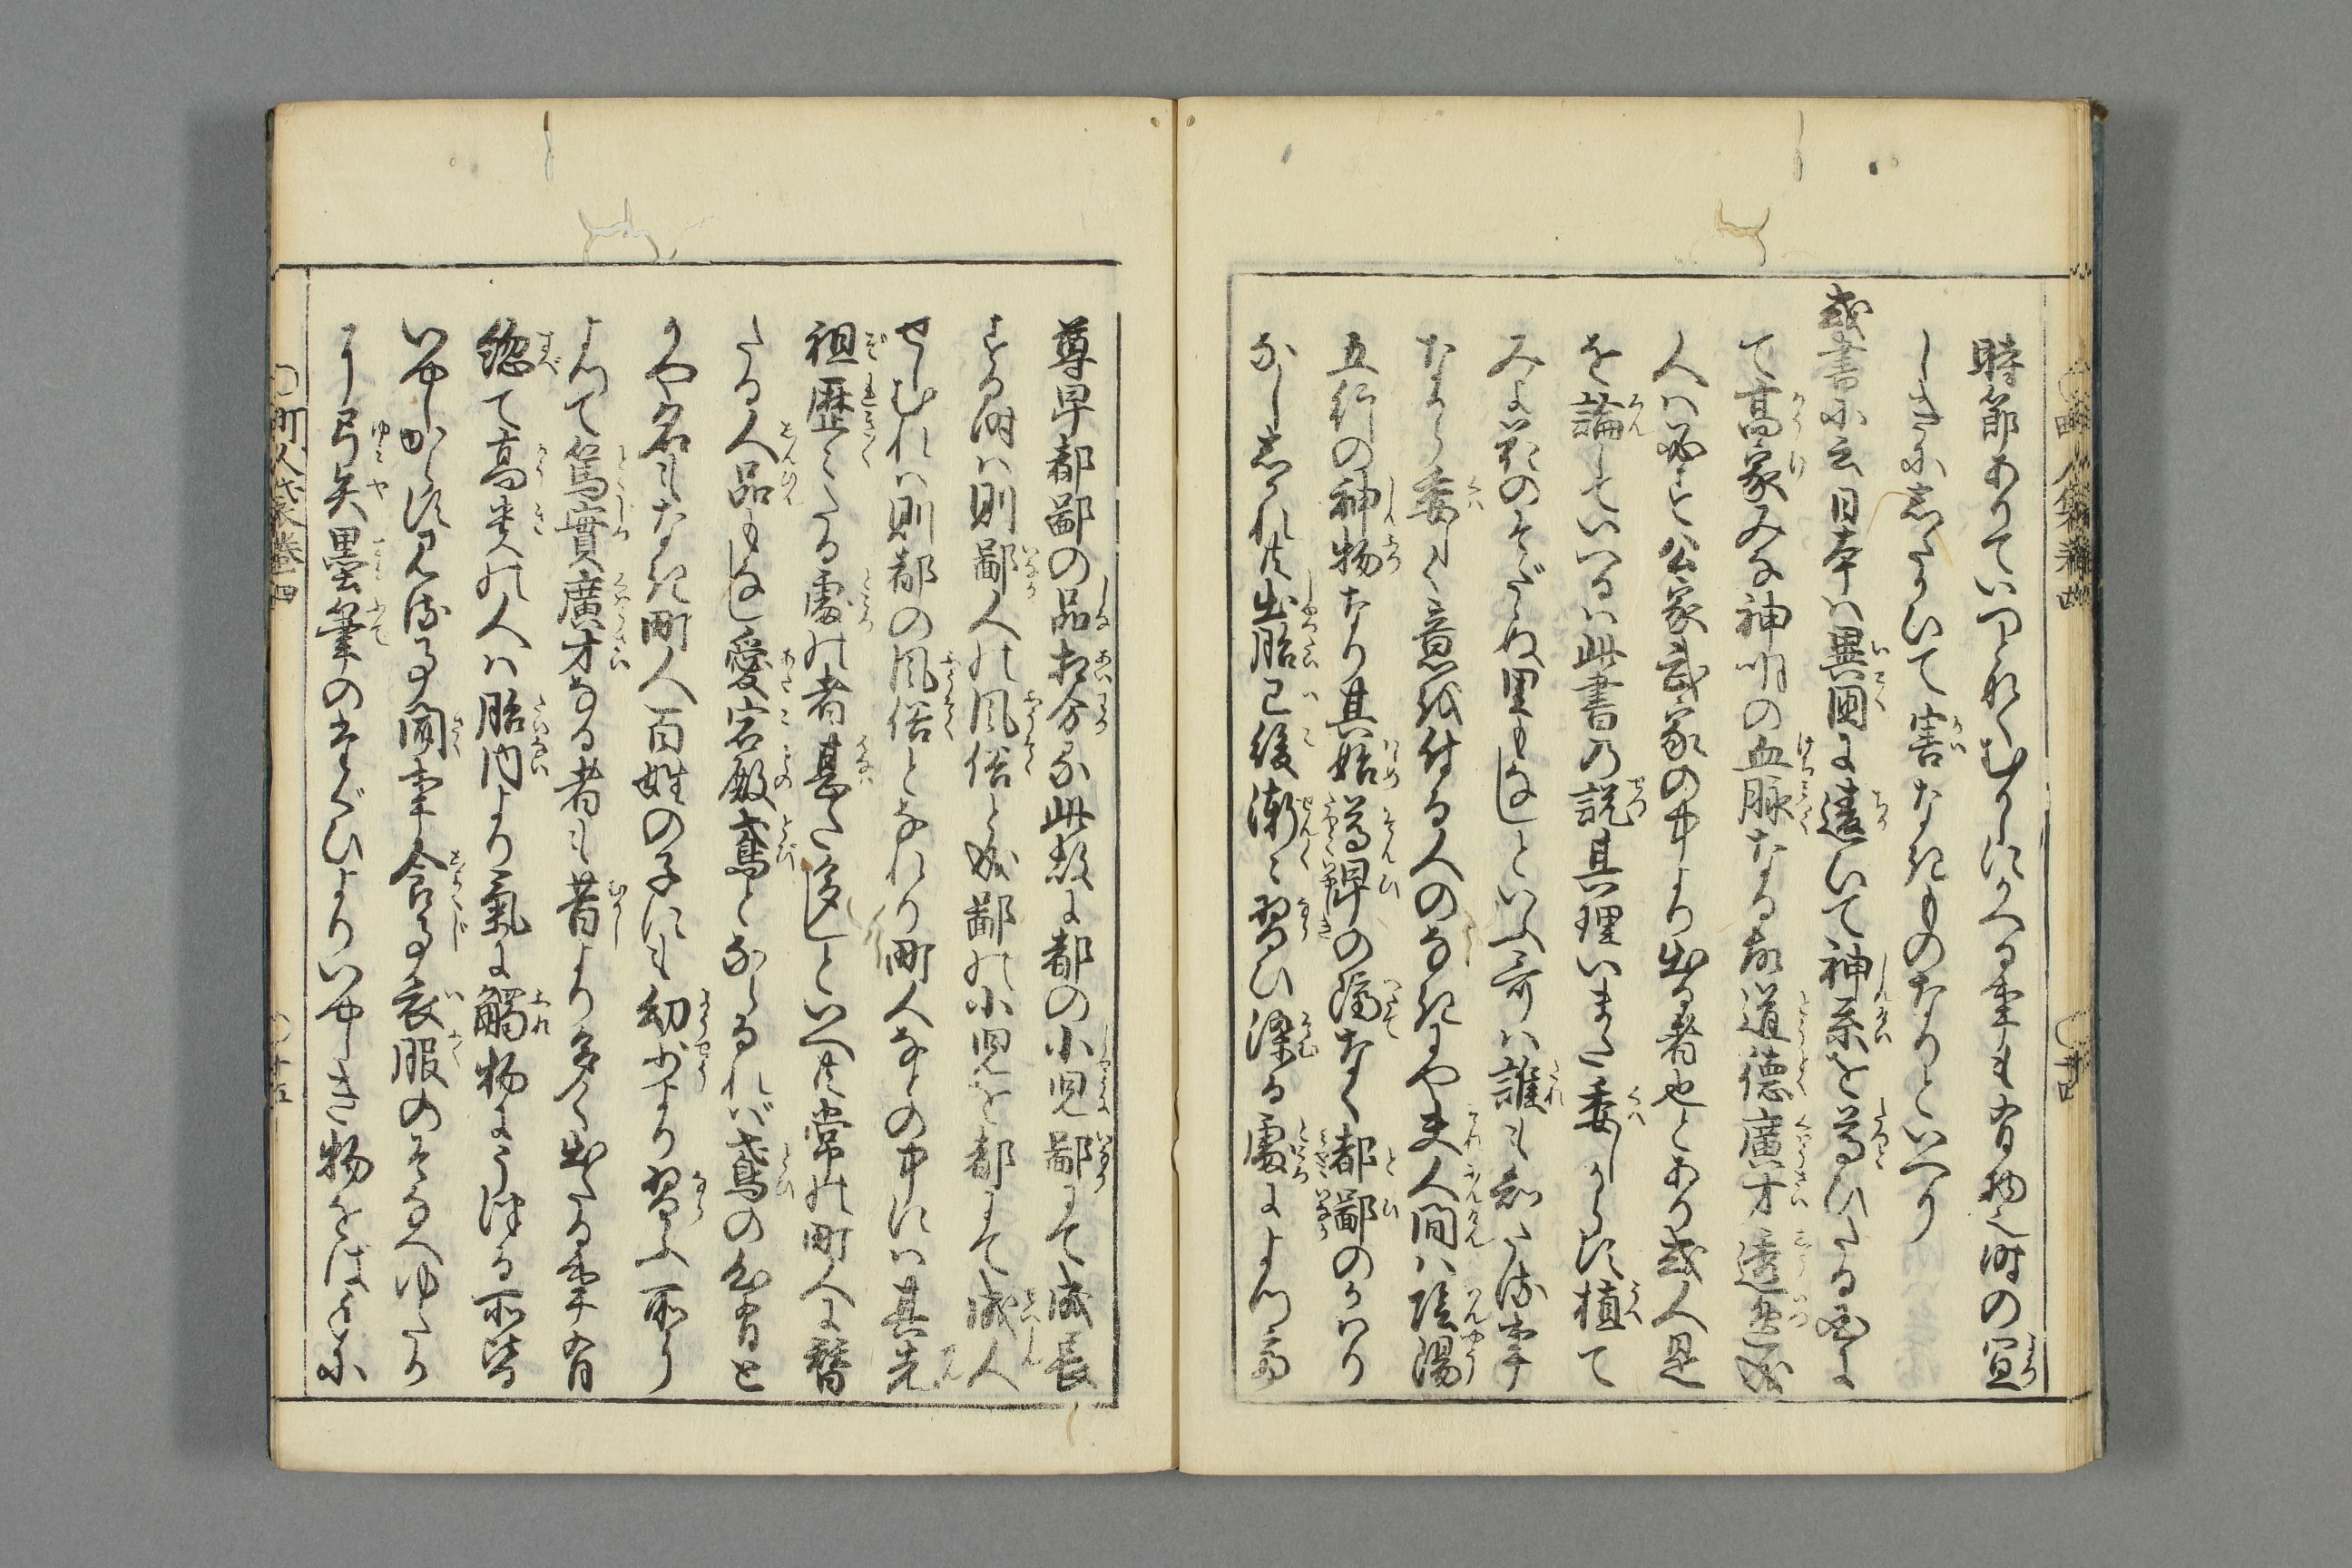 時節ありていつとなくむかしにかへる事も有物也時の宜
しきにしたがひて害なきものなりといへり
或書に云日本は異國に違いて神系を尊びたる國に
て高家みな神明の血脉なる故道徳廣才透逸成
人は必ず公家武家の中より出る者也とあり或人是
を論じていへるは此書の説其理いまた委しからず植て
みよ花のそだゝぬ里もなしといふ哥は誰も知たる事
なから委しく意を付る人のなきにや夫人間は陰陽
五行の神物なり其始尊卑の隔なく都鄙のかはり
なし然れ共出胎已後漸々習ひ染る處によつて
尊卑都鄙の品相分る此故に都の小児鄙にて成長
する時は則鄙人の風俗と成鄙の小児を都にて成人
せしむれは則都の風俗となれり町人なとの中には其先
祖歴々たる處の者甚た多しといへ共常の町人に替
たる人品もなし愛宕殿鳶となるれば鳶の心有と
かや名もなき町人百姓の子にも幼少より習ふ所に
よつて篤實廣才なる者も昔より多く出たる事有
惣て高貴の人は胎内より氣に觸物にうつる所皆
いやしからず見る事聞事食る事衣服のそなへゆたか
に弓矢墨筆のたぐひよりいやしき物をばよそに
町人袋巻四